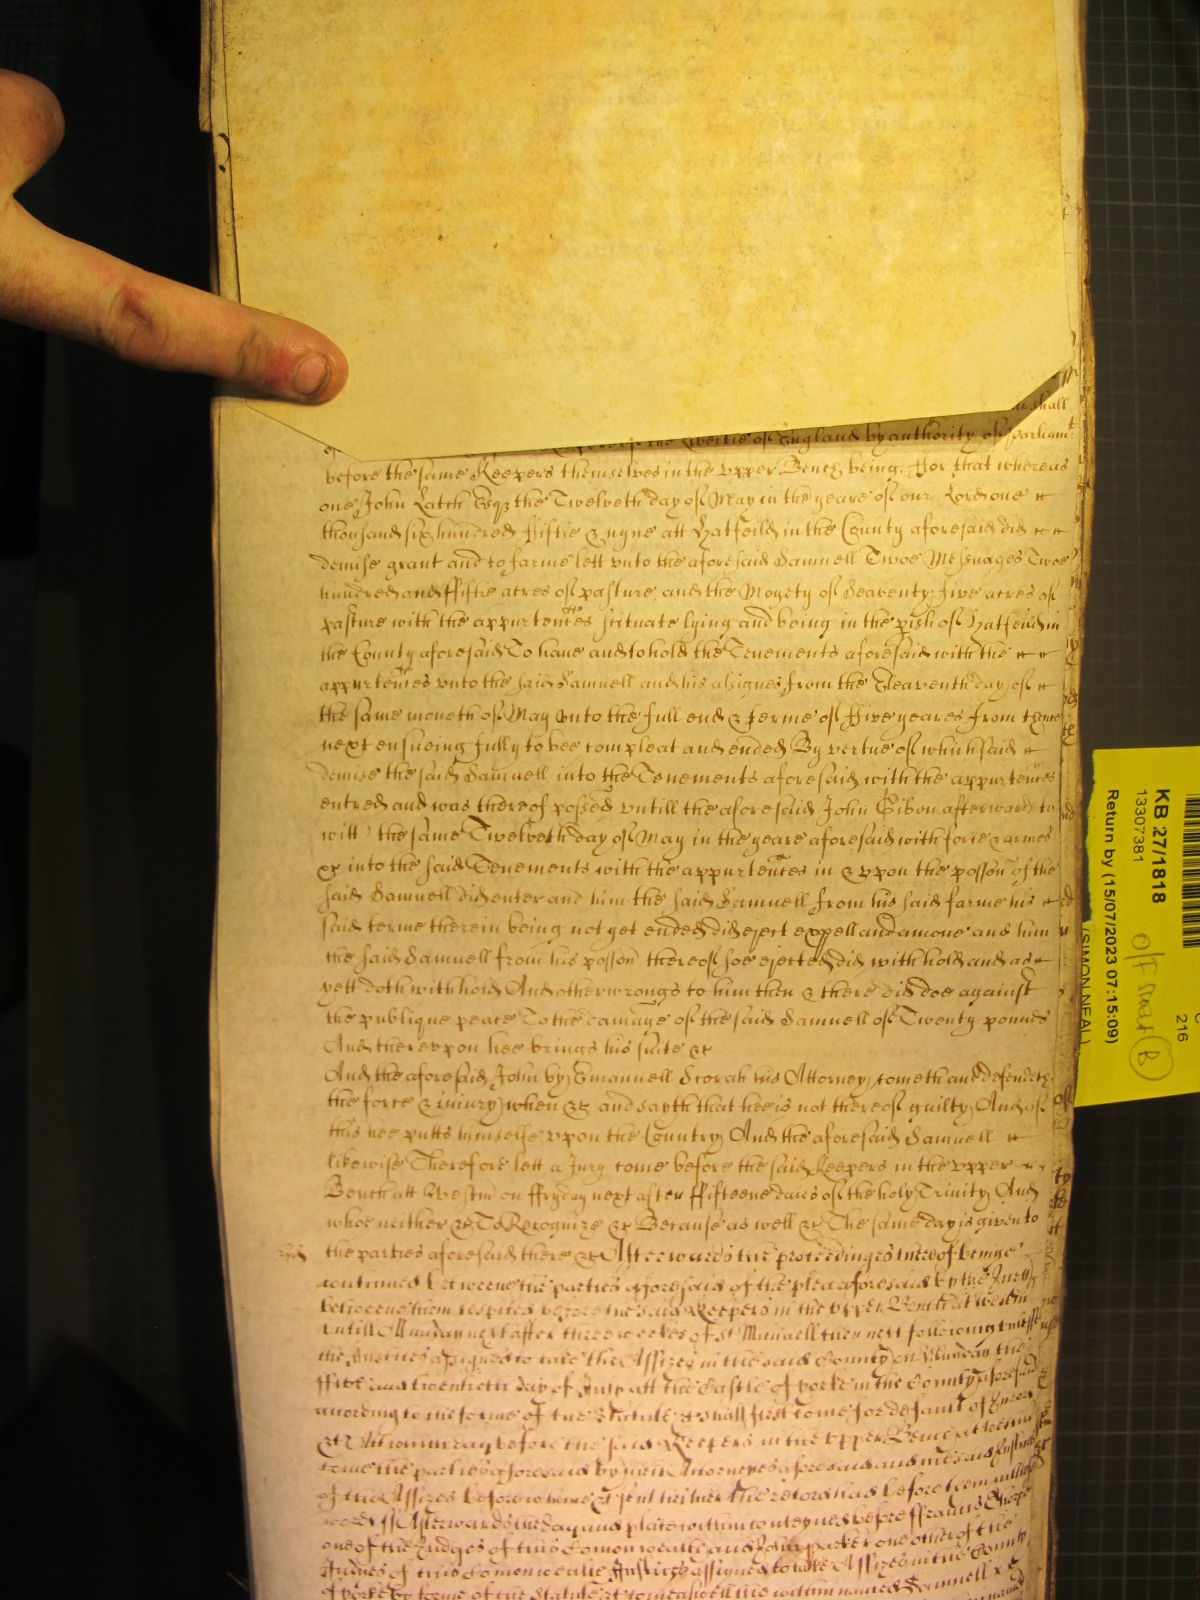 shall
the libertie of England by authority of Parliamt
before the same Keepers themselves in the upper Bench being. For that whereas
one John Latch Esqr the Twelveth day of May in the yeare of our Lord one
thousand six hundred fiftie & nyne att Hatfeild in the County aforesaid did
demise grant and to farme lett unto the aforesaid Samuell Twoe Messuages Twoe
hundred and ffiftie acres of pasture and the Moyety of Seaventy five acres of
pasture with the appurtences scituate lying and being in the pish of Hatfeild in
the County aforesaid To have and to hold the Tenements aforesaid with the
appurtences unto the said Samuell and his assignes from the Eleaventh day of
the same moneth of May unto the full end & terme of ffive yeares from thence
next ensueing fully to bee compleat and ended By vertue of which said
demise the said Samuell into the Tenements aforesaid with the appurtences
entred and was thereof possed untill the aforesaid John Gibon afterwards to
witt the same Twelveth day of May in the yeare aforesaid with force & armes
&c into the said Tenements with the appurtences in & upon the possion of the
said Samuell did enter and him the said Samuell from his said farme his
said terme therein being not yet ended did eject expell and amove and him
the said Samuell from his possion thereof soe ejected did with hold and as
yett doth with hold And other wrongs to him then & there did doe against
the publique peace To the damage of the said Samuell of Twenty pounds
And thereupon hee brings his suite &c
And the aforesaid John by Emanuell Scorah his Attorney cometh and defendeth
the force & iniury when &c and sayth that hee is not thereof guilty And of
this hee putts himselfe upon the Country And the aforesaid Samuell
likewise Therefore lett a Jury come before the said Keepers in the upper
Bench att Westm on ffryday next after ffifteene daies of the holy Trinity And
whoe neither &c To Recognize &c Because as well &c The same day is given to
the parties aforesaid there &c Afterwards the proceedinges thereof beinge
continued betweene the parties aforesaid of the plea aforesaid by the Jury
betweene them respited before the said Keepers in the upper Bench at Westm
untill Munday next after three weekes of St Michaell then next following unlesse
the Justices assigned to take the Assizes in the said County on Munday the
ffive and twentieth day of July att the Castle of Yorke in the County aforesaid
according to the forme of the Statute &c shall first come for default of Jurors
&c Att which day before the said Keepers in the Upper Bench at Westm
come the parties aforesaid by their Attorneyes aforesaid and the said Justices
of the Assizes before whome &c sent hither the record had before them in these
words ss Afterwards the day and place within conteyned before ffrancis Thorpe
one of the Judges of this Comonwealth and John Parker one other of the
Judges of this Comonwealth Justices assigned to take Assizes in the County
of Yorke by forme of the Statute &c come aswell the within named Samuell
KB 27/1818
13307381
Return by (15/07/2023 07:15:09)
(SIMON NEAL)
216
B